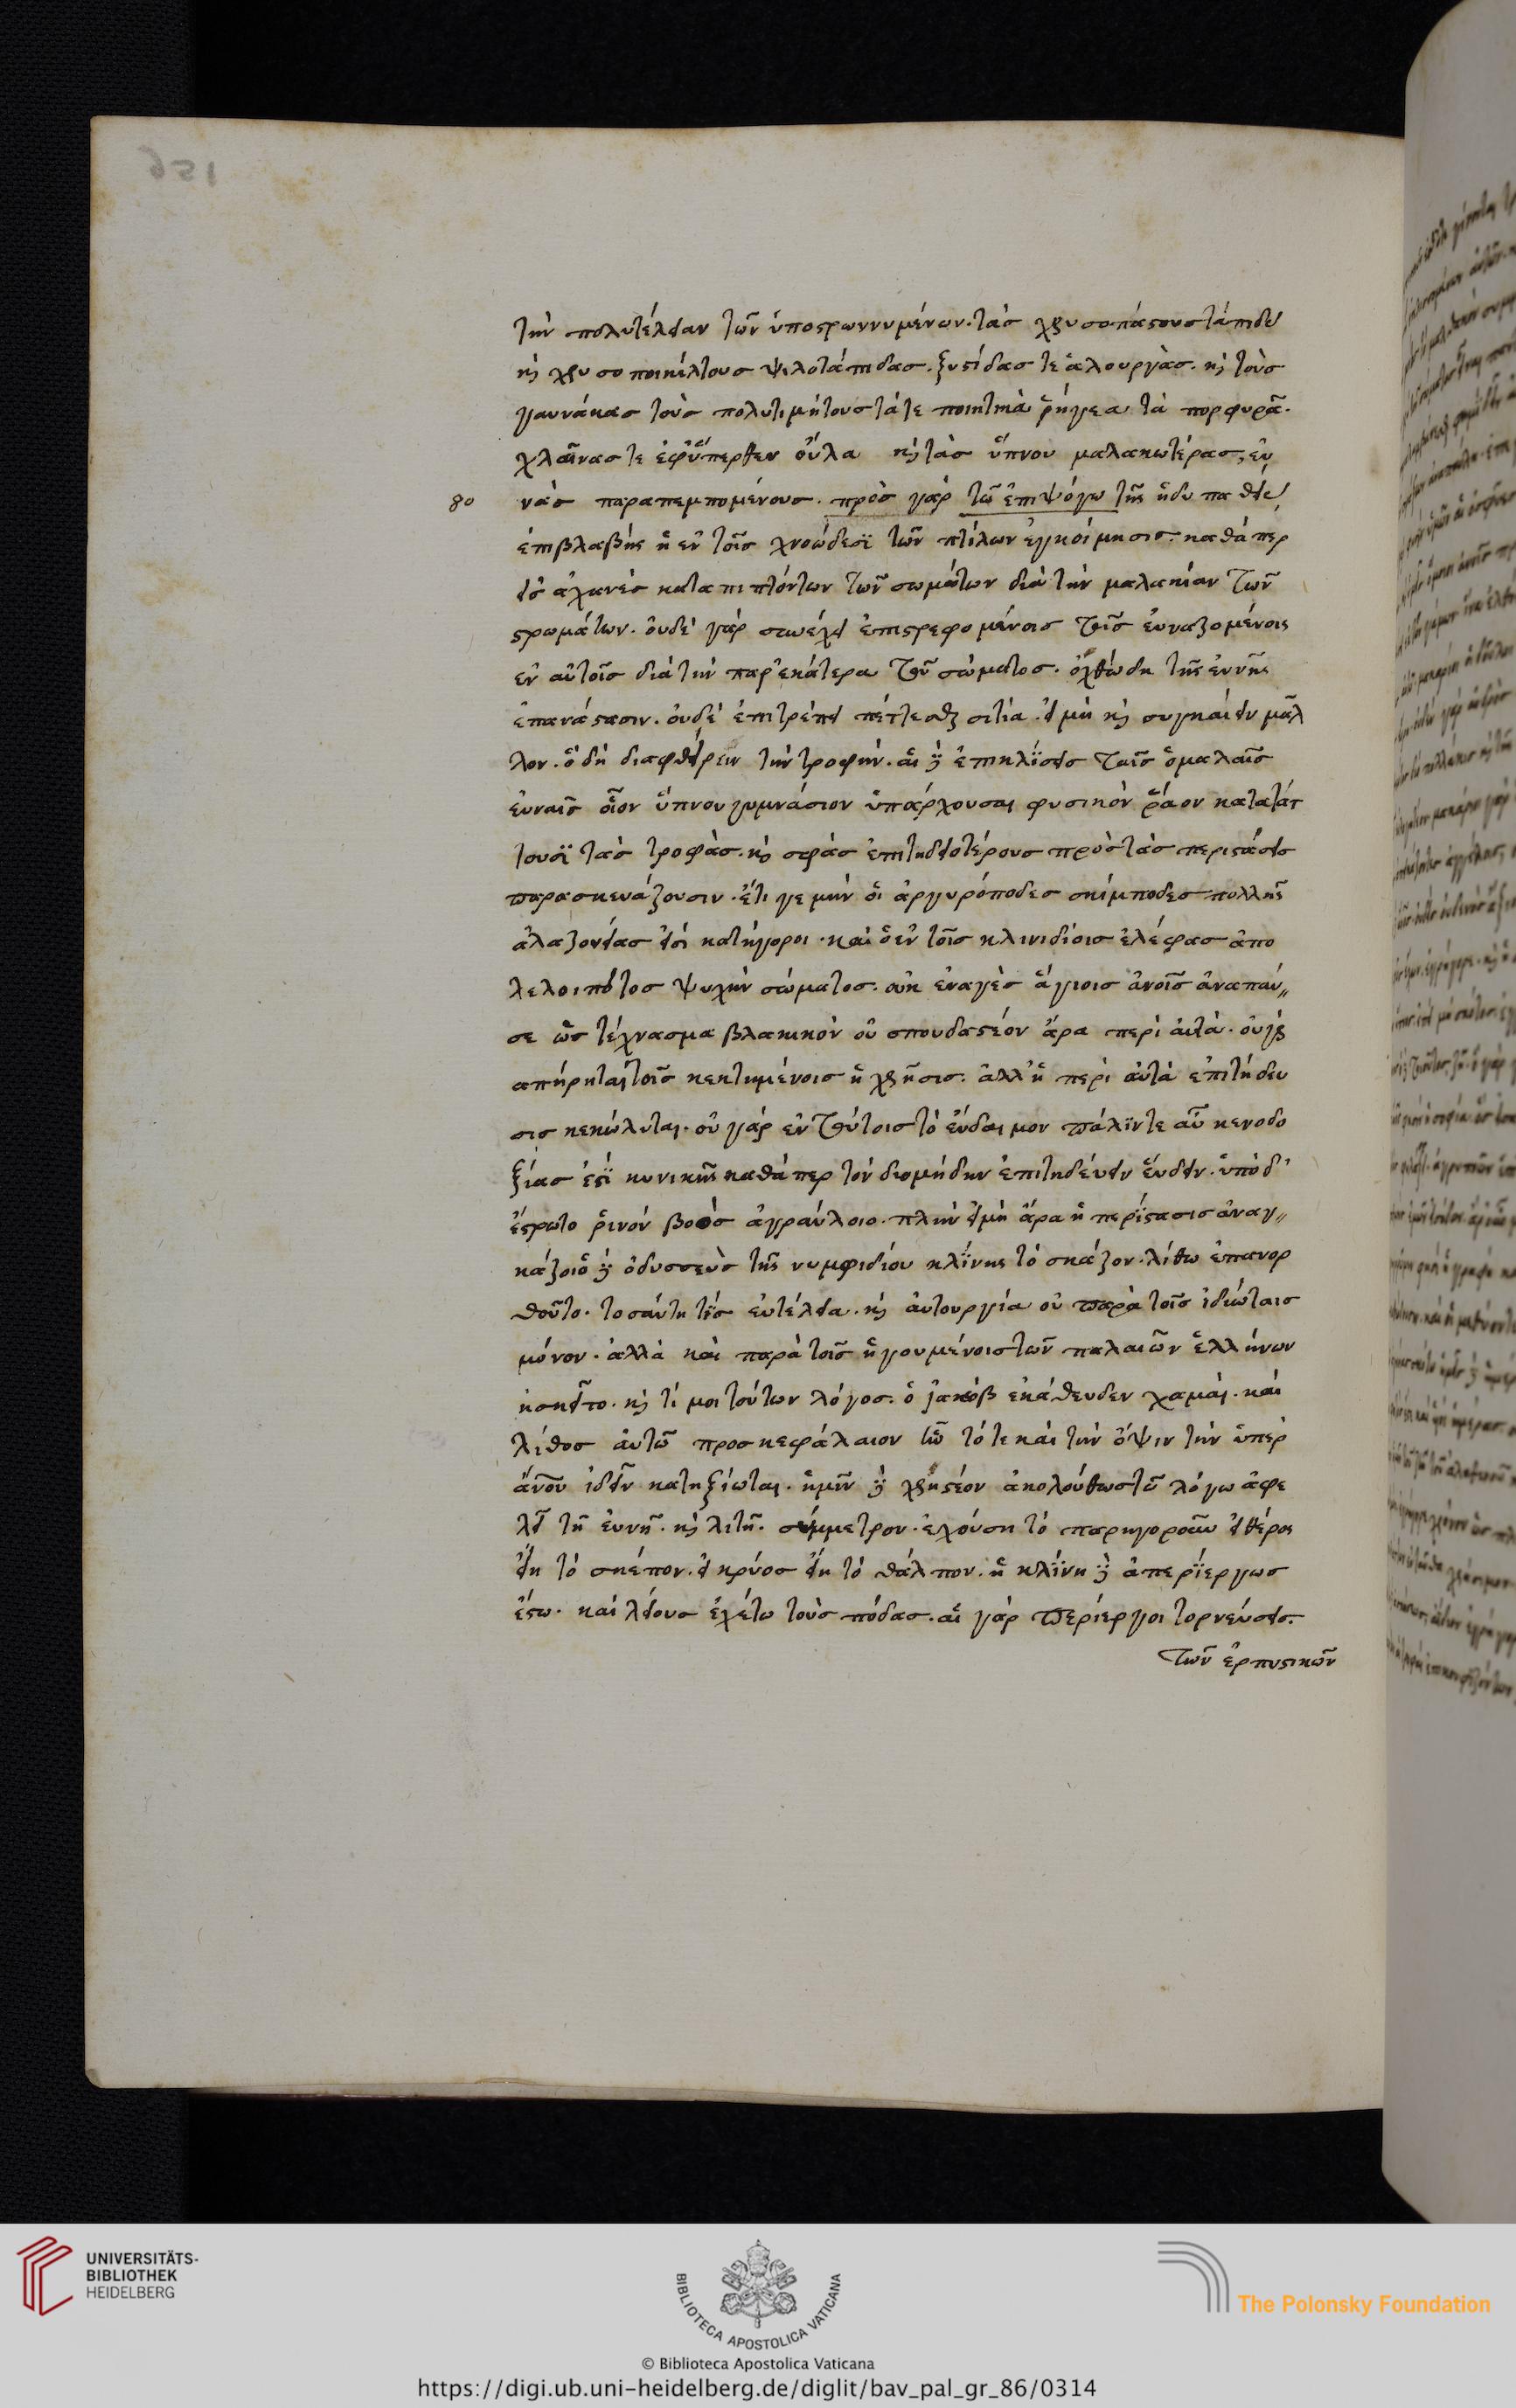 τὴν πολυτέλειαν τῶν ὑποστρωννυμένων. τὰς χρυσοπάστους τάπιδας
καὶ χρυσοποικίλτους ψιλοτάπιδας. ξυστίδας τε ἁλουργὰς. καὶ τοὺς
γαυνάκας τοὺς πολυτιμήτους τά τε ποιητικὰ ῥήγεα τὰ πορφυρᾶ.
χλαῖνας τε ἐφύπερθεν οὔλα καὶ τὰς ὕπνου μαλακωτέρας, εὐ
80 νὰς παραπεμπομένους. πρὸς γὰρ τῶ ἐπιψόγω τῆς ἡδυπαθεί
ἐπιβλαβὴς ἡ ἐν τοῖς χνοώδεσϊ τῶν πτίλων ἐγκοίμησις. καθάπερ
εἰς ἀχανὲς καταπιπτόντων τῶν σωμάτων διὰ τὴν μαλακίαν τῶν
στρωμάτων. οὐδὲ γὰρ συνέχει ἐπιστρεφομένοις τοῖς εὐναζομένοις
ἐν αὐτοῖς διὰ τὴν παρ' ἑκάτερα τοῦ σώματος. ὀχθώδη τῆς εὐνῆς
ἐπανάστασιν. οὐδὲ ἐπιτρέπει πέττεσθαι σιτία. εἰ μὴ καὶ συγκαίειν μᾶλ
λον. ὃ δὴ διαφθείρειν τὴν τροφήν. αἱ δὲ ἐπικλίσεις ταῖς ὁμαλαῖς
εὐναῖς οἷον ὕπνου γυμνάσιον ὑπάρχουσαι φυσικὸν ῥᾶον κατατάτ
τουσϊ τὰς τροφὰς. καὶ σφᾶς ἐπιτηδειοτέρους πρὸς τὰς περιστάσεις
παρασκευάζουσιν. ἔτι γε μὴν οἱ ἀργυρόποδες σκίμποδες πολλῆς
ἀλαζονείας εἰσὶ κατήγοροι. καὶ ὁ ἐν τοῖς κλινιδίοις ἐλέφας ἀπο
λελοιπότος ψυχὴν σώματος. οὐκ εὐαγὲς ἁγίοις ἀνοῖς ἀναπαύ
σε ὡς τέχνασμα βλακικὸν οὐ σπουδαστέον ἄρα περὶ αὐτὰ. οὐ γὰρ
ἀπήρηται τοῖς κεκτημένοις ἡ χρῆσις. ἀλλ' ἡ περὶ αὐτὰ ἐπιτήδευ
σις κεκώλυται. οὐ γὰρ ἐν τούτοις τὸ εὔδαιμον πάλϊν τε αὖ κενοδο
ξίας ἐστϊ κυνικῆς καθάπερ τὸν διομήδην ἐπιτηδεύειν εὕδειν. ὑπὸ δ'
ἔστρωτο ῥινὸν βοὸς ἀγραύλοιο. πλὴν εἰ μὴ ἄρα ἡ περίστασις ἀναγ
κάζοι ὁ δὲ ὀδυσσεὺς τῆς νυμφιδίου κλίνης τὸ σκάζον. λίθω ἐπανορ
θοῦτο. τοσαύτη τὶς εὐτέλεια. καὶ αὐτουργία οὐ παρὰ τοῖς ἰδιώταις
μόνον. ἀλλὰ καὶ παρὰ τοῖς ἡγουμένοις τῶν παλαιῶν ἑλλήνων
ἠσκεῖτο. καὶ τί μοι τούτων λόγος. ὁ ἰακὼβ ἐκάθευδεν χαμαὶ. καὶ
λίθος αὐτῶ προσκεφάλαιον ἦν τότε καὶ τὴν ὄψιν τὴν ὑπὲρ
ἄνον ἰδεῖν κατηξίωται. ἡμῖν δὲ χρηστέον ἀκολούθως τῶ λόγω ἀφε
λεῖ τῆ εὐνῆ. καὶ λιτῆ. σύμμετρον. ἐχούση τὸ παρηγοροῦν εἰ θέρος
εἴη τὸ σκέπον. εἰ κρύος εἴη τὸ θάλπον. ἡ κλίνη δὲ ἀπερίεργως
ἔστω. καὶ λείους ἐχέτω τοὺς πόδας. αἱ γὰρ περίεργοι τορνεύσεις.
τῶν ἑρπυστικῶν
UNIVERSITÄTS-
BIBLIOTHEK
HEIDELBERG
BIBLIOTECA APOSTOLICA VATICANA
The Polonsky Foundation
© Biblioteca Apostolica Vaticana
https://digi.ub.uni-heidelberg.de/diglit/bav_pal_gr_86/0314